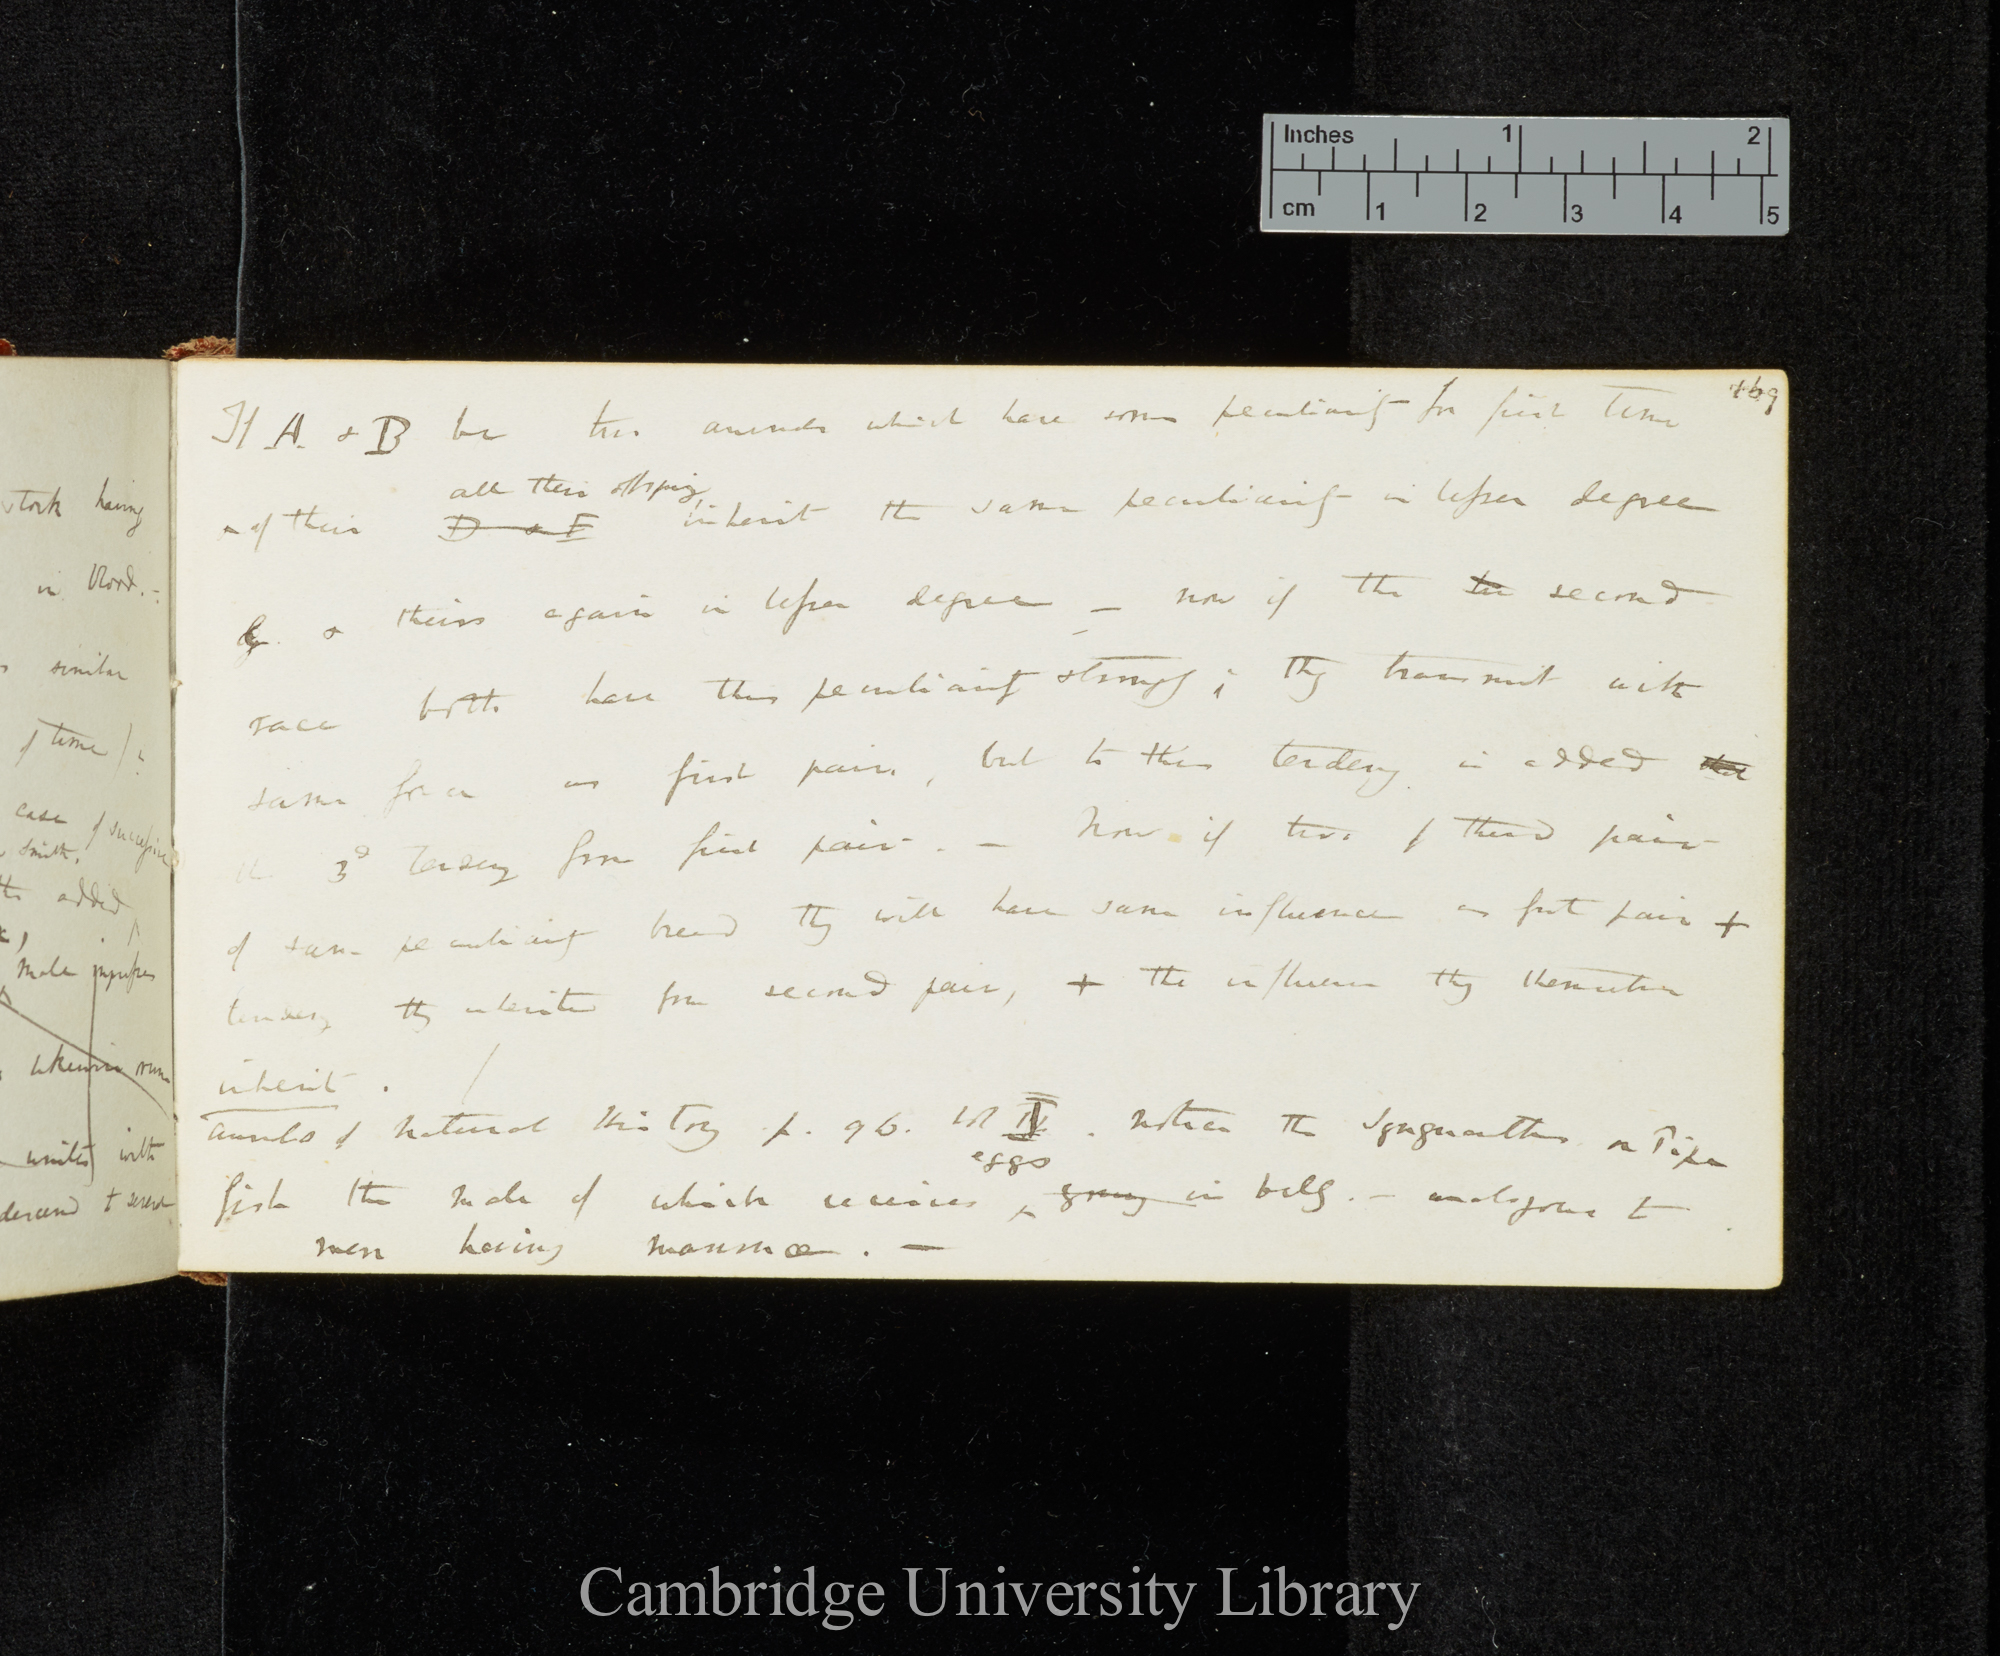 Inches 1 2
cm 1 2 3 4 5
169
If A & B be two animals which have some peculiarity for first time
& if their all their offspring D & E inherit the same peculiarity in lesser degree
& theirs again in lesser degree — now if the the second
race both have this peculiarity strongly; they transmit with
same force as first pair, but to this tendency is added the
the 3d tendency from first pair. — Now if two of third pair
of same peculiarity breed they will have same influence as first pair +
tendency they inherited from second pair, + the influence they themselves
inherit. /
Annals of Natural History p. 96. Vol IV. notices the Syngnathus or Pipe
fish the male of which receives eggs young in belly. — analogous to
men having mammæ. —
stock having
in blood. —
similar
of time)
case of successive
Smith.
added
male
likewise
unites with
Cambridge University Library